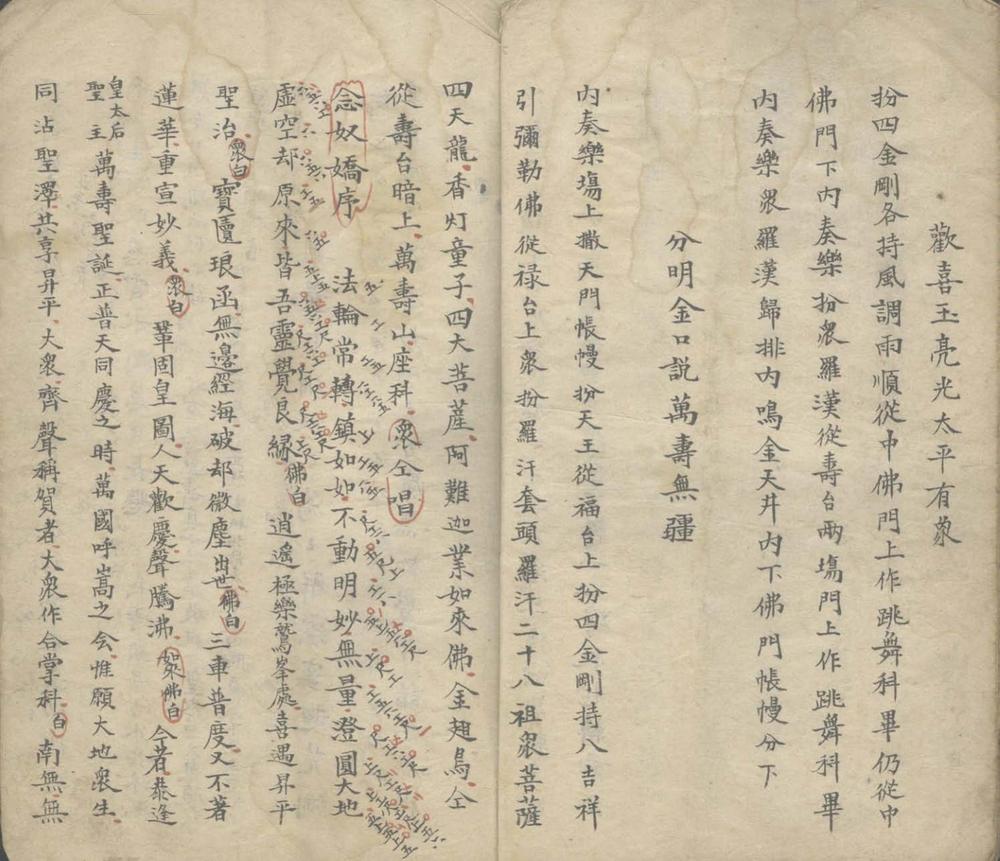 歡喜玉亮光太平有象
扮四金剛各持風調雨順從中佛門上作跳舞科畢仍從中
佛門下內奏樂扮衆羅漢從壽台兩塲門上作跳舞科畢
內奏樂衆羅漢歸排內鳴金天井內下佛門帳幔分下
分明金口説萬壽無疆
內奏樂塲上撒天門帳幔扮天王從福台上扮四金剛持八吉祥
引彌勒佛從禄台上衆扮羅汗套頭羅汗二十八祖衆菩薩
四天龍香灯童子四大菩薩阿難迦葉如來佛金翅鳥仝
從壽台暗上萬壽山座科衆仝唱
念奴嬌序 法輪常轉鎮如如不動明妙無量澄圓大地
虛空却原來皆吾靈覺良緣佛白逍遙極樂鷲峯處喜遇昇平
聖治衆白寶匱琅函無邊經海破却微塵出世佛白三車普度又不著
蓮華重宣妙義衆白鞏固皇圖人天歡慶聲騰沸衆佛白今者恭逢
皇太后
聖主萬壽聖誕正普天同慶之時萬國呼嵩之会惟願大地衆生
同沾聖澤共享昇平大衆齊聲稱賀者大衆作合掌科白南無無